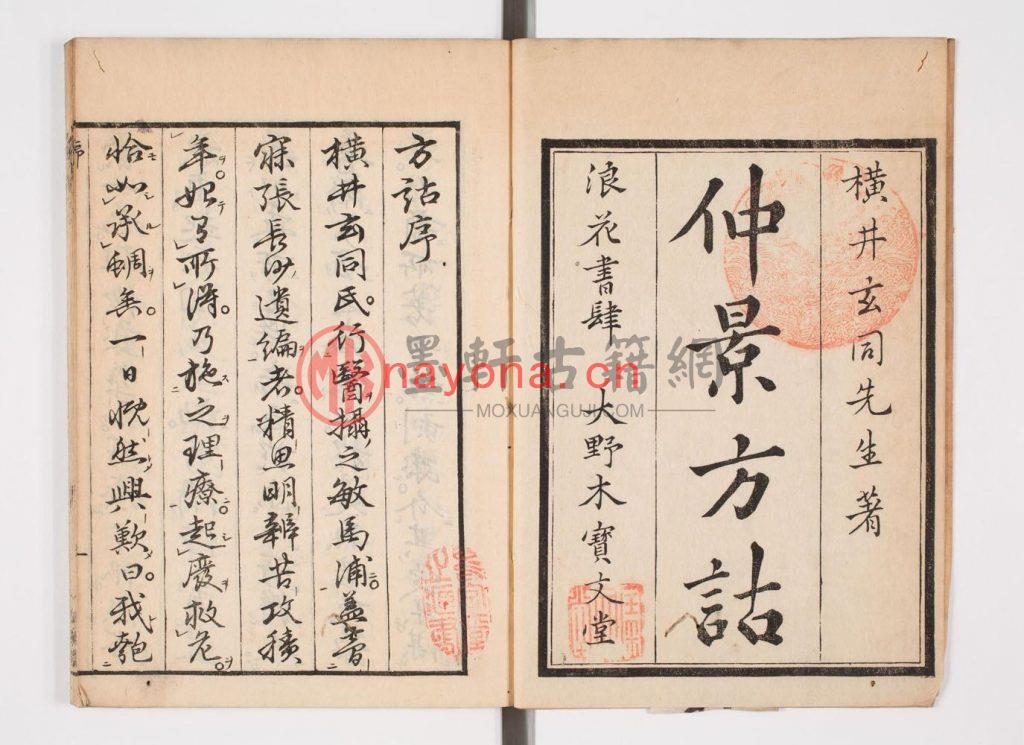 橫井玄同先生著
仲景方詁
浪花書肆 大野木寶文堂
方詁序
橫井玄同氏行醫攝之敏馬浦蓋嘗
寐張長沙遺編者精思明辨苦攻積
年如有所得乃施之理療起廢救危
恰如承蜩矣一日慨然興歎曰我匏
序
墨軒古籍網
nayona.cn
MOXUANGUJI.COM